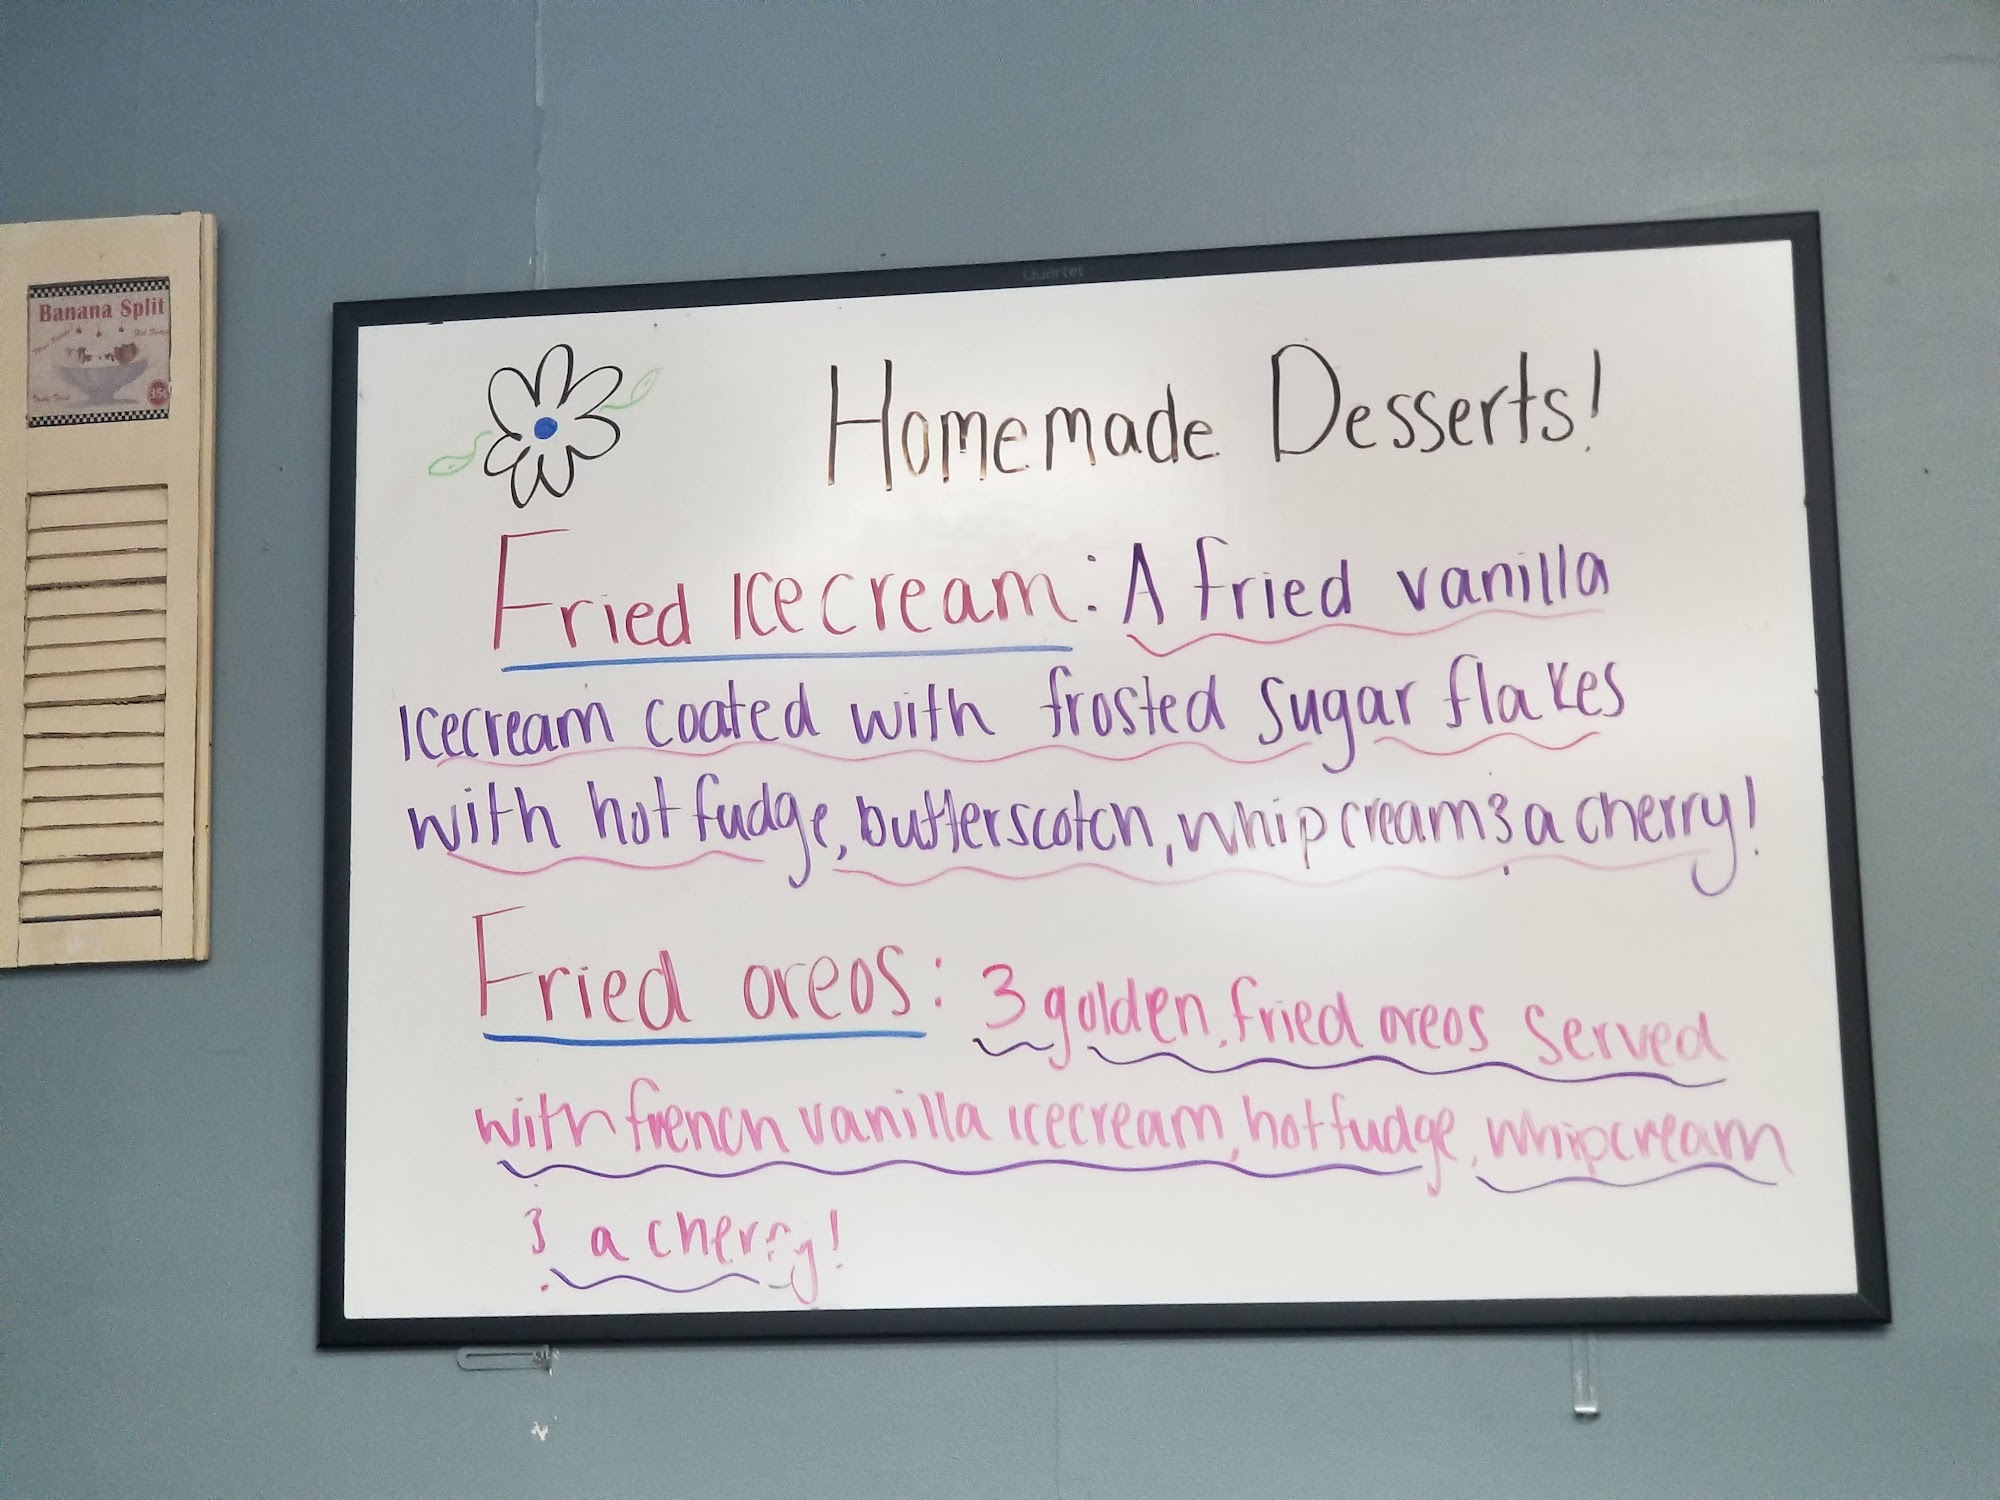 Quartet
Banana Split
35¢
Homemade Desserts!
Fried Icecream: A fried vanilla
Icecream coated with frosted sugar flakes
with hot fudge, butterscotch, whip cream & a cherry!
Fried oreos: 3 golden, fried oreos served
with french vanilla icecream, hot fudge, whipcream
& a cherry!